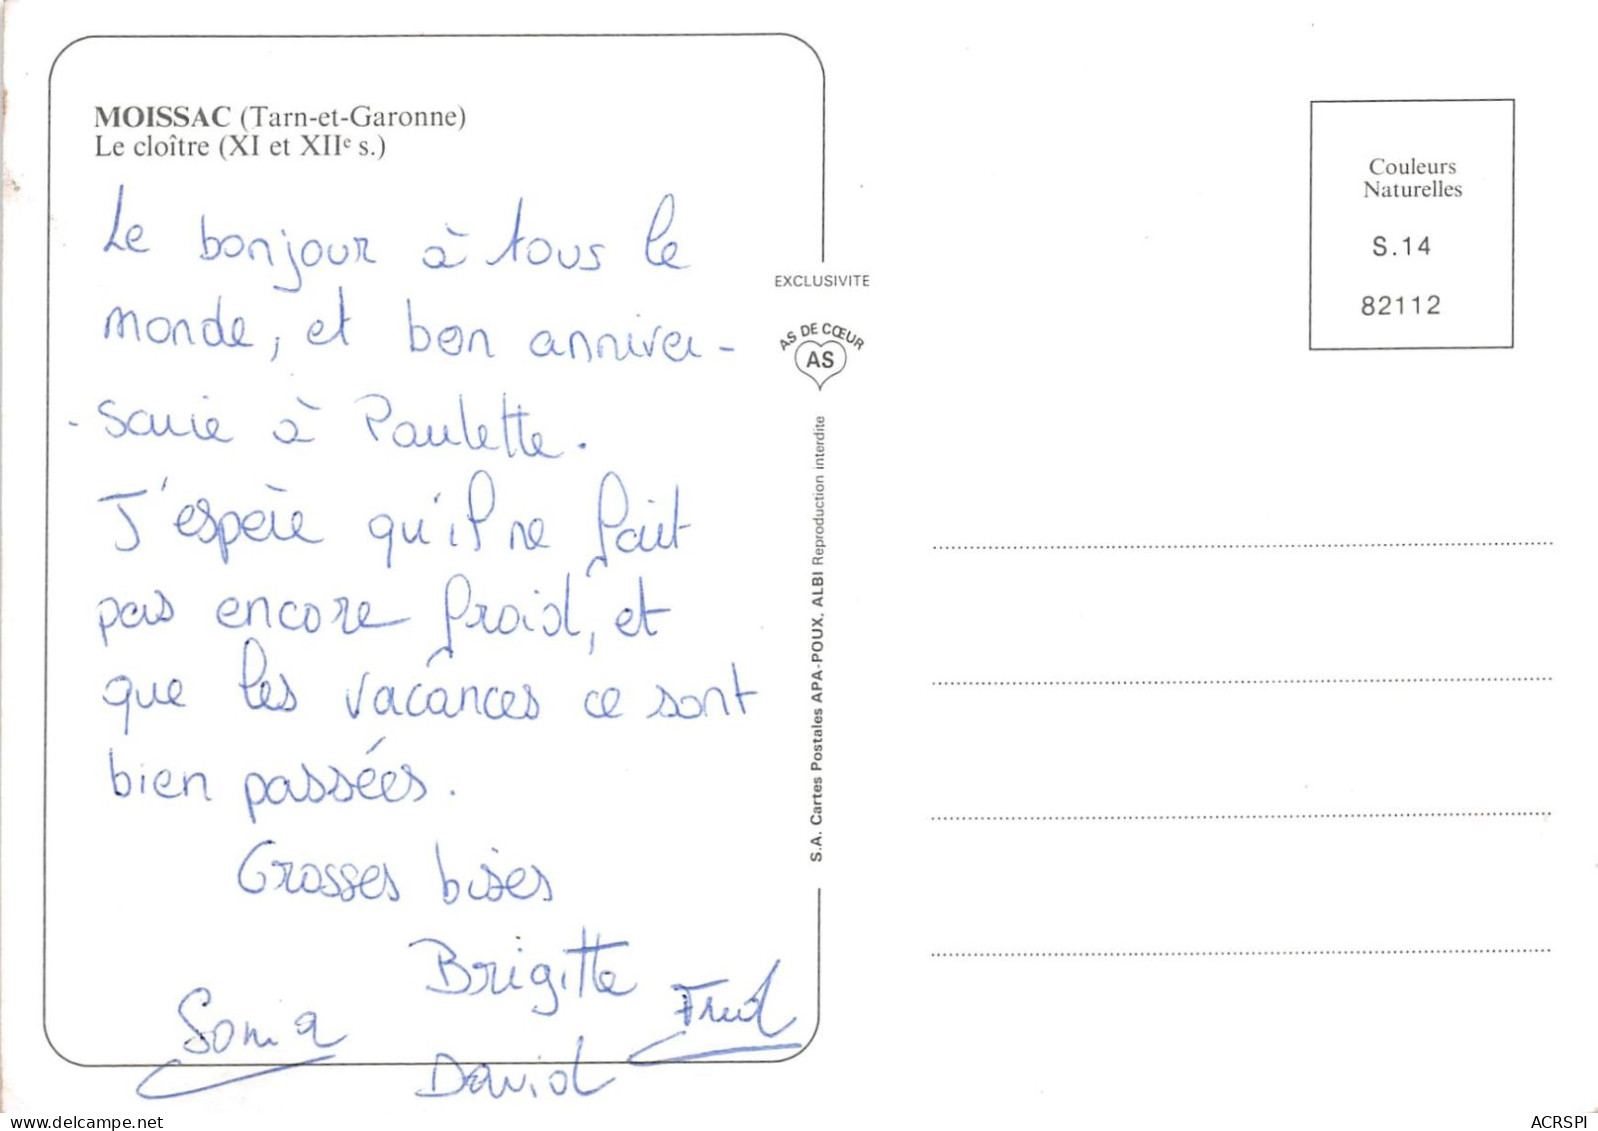 MOISSAC (Tarn-et-Garonne)
Le cloître (XI et XIIe s.)
Le bonjour à tous le
monde, et bon anniver-
-sairie à Paulette.
J'espère qu'il ne fait
pas encore froid, et
que les vacances ce sont
bien passées.
Grosses bises
Brigitte
Sonia
Fred
David
EXCLUSIVITE
AS DE CŒUR
AS
S.A. Cartes Postales APA-POUX, ALBI Reproduction interdite
Couleurs
Naturelles
S.14
82112
ACRSPI